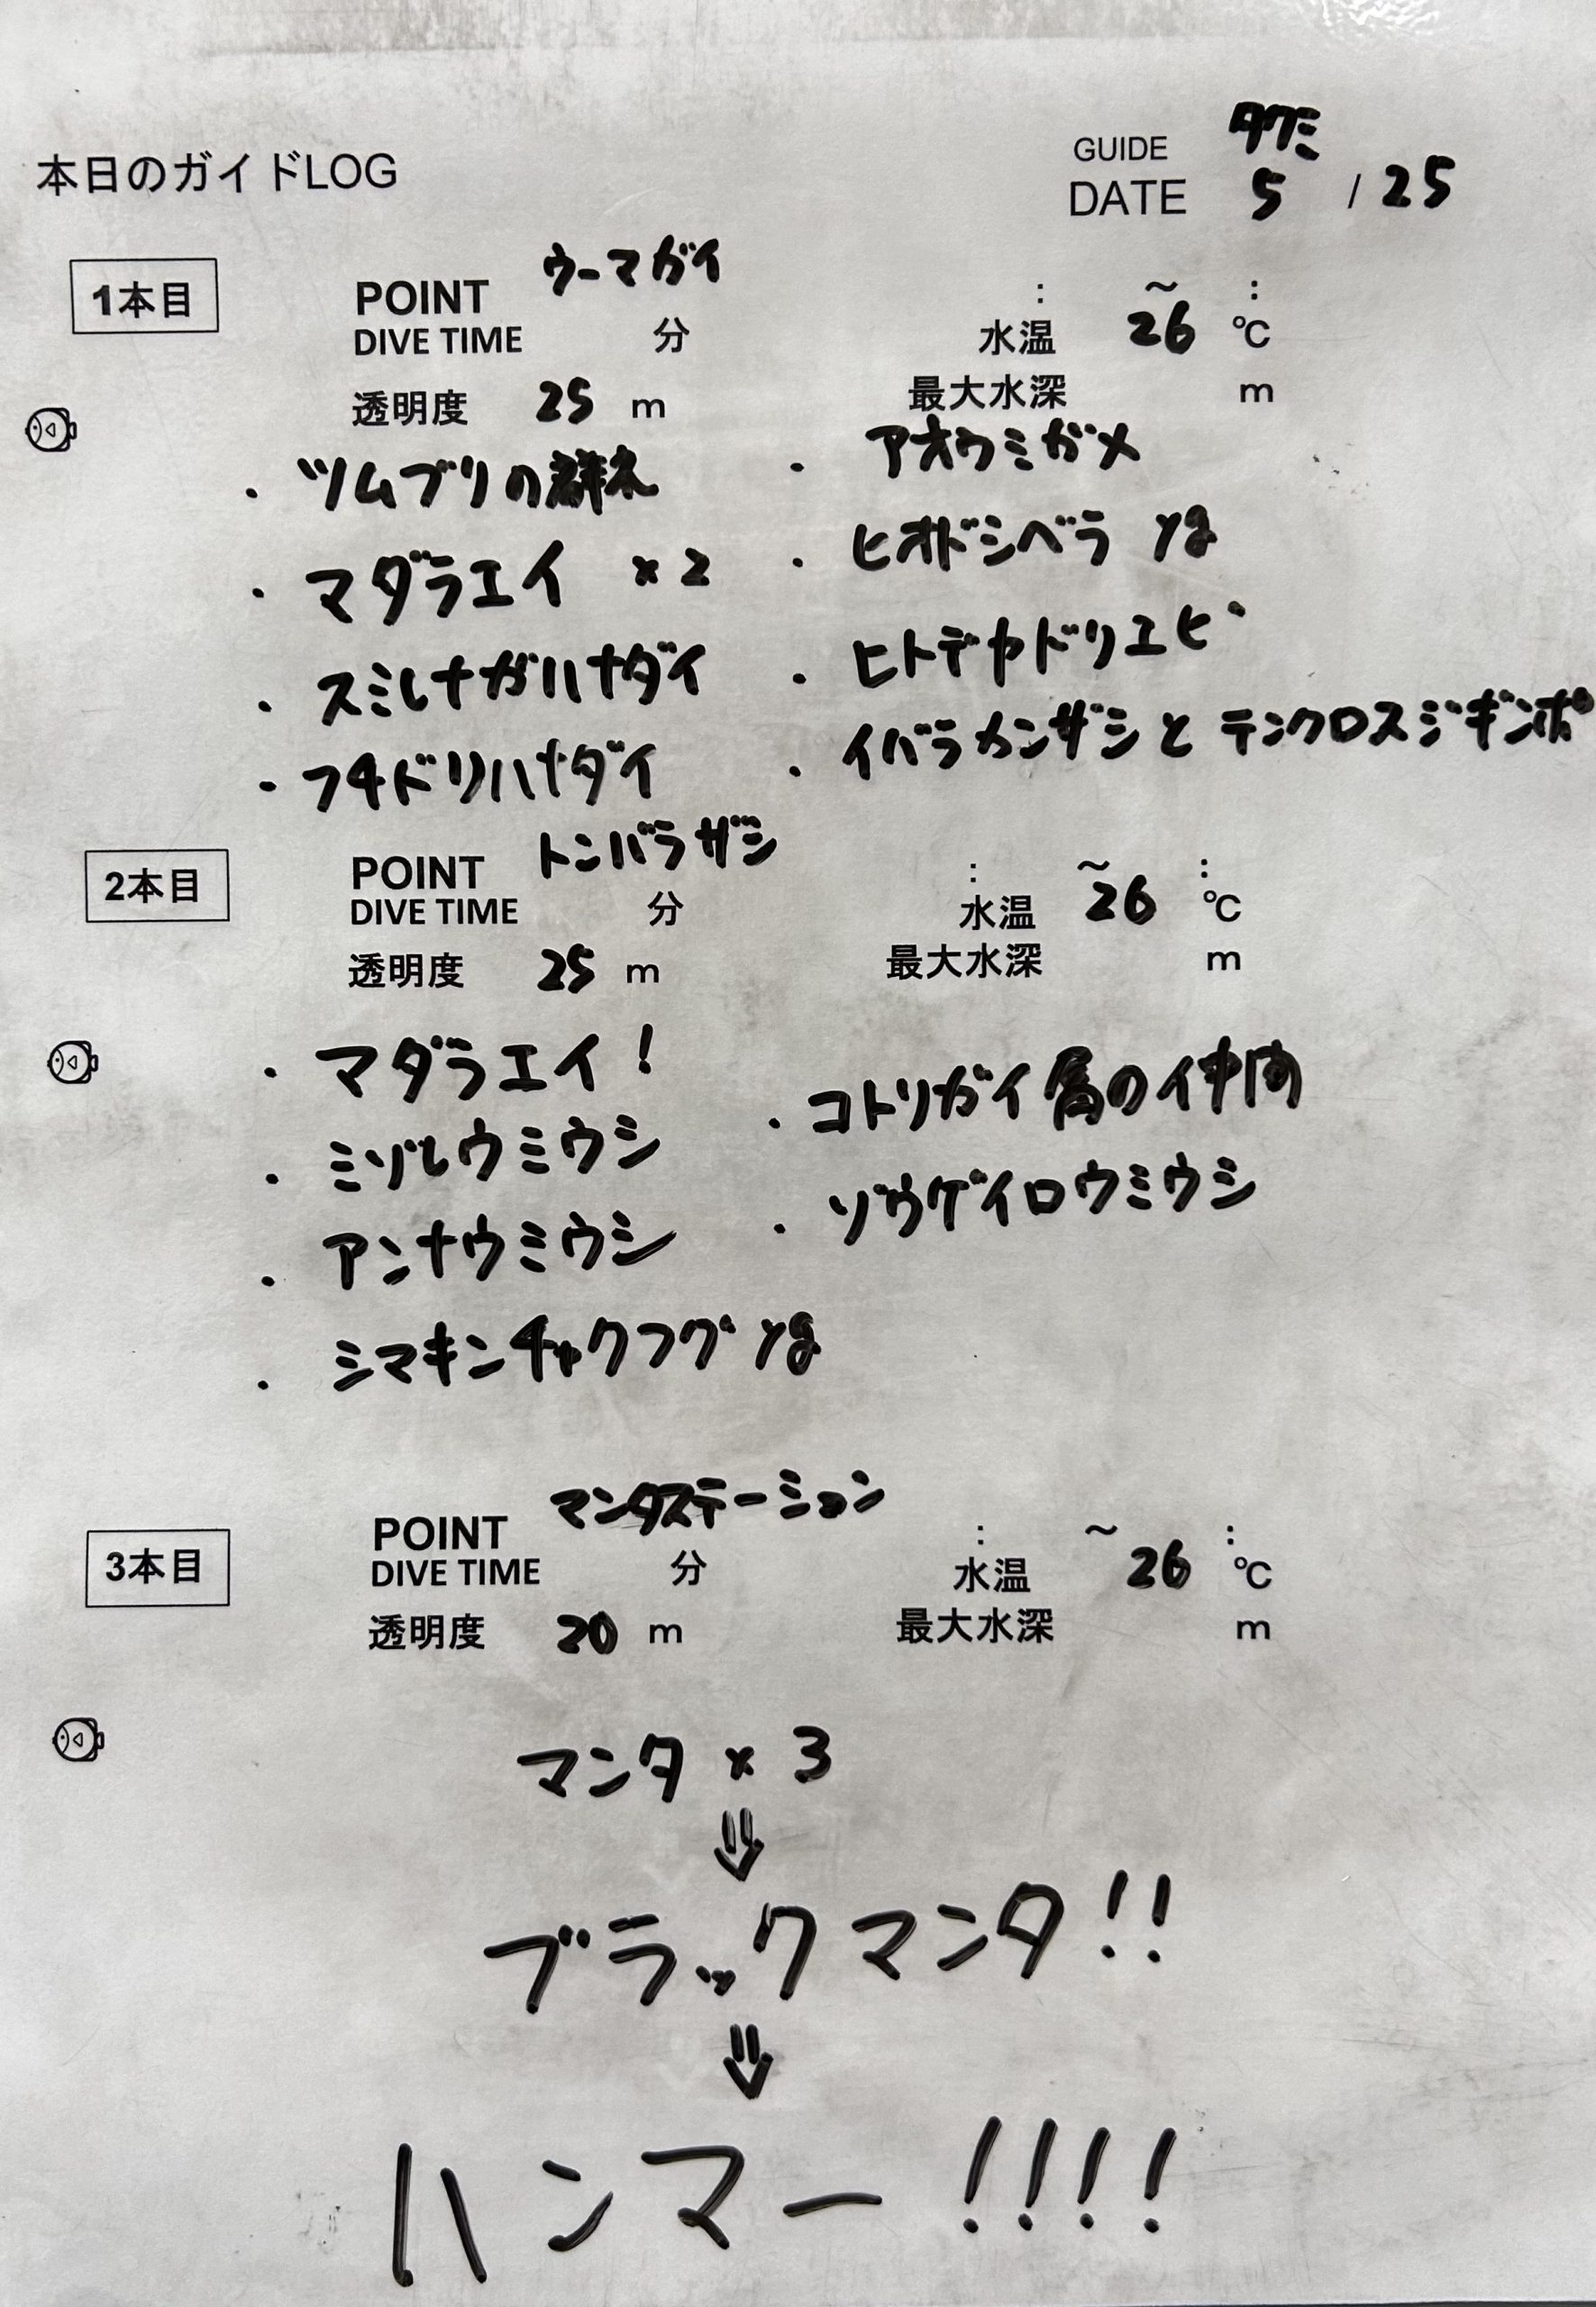 本日のガイドLOG
GUIDE タクミ
DATE 5 / 25
1本目
POINT ウーマガイ : ～ :
DIVE TIME 分 水温 26 ℃
透明度 25 m 最大水深 m
・ツムブリの群れ
・マダラエイ ×2
・スミレナガハナダイ
・フチドリハナダイ
・アオウミガメ
・ヒオドシベラ yg
・ヒトデヤドリエビ
・イバラカンザシとテンクロスジギンポ
2本目
POINT トンバラザシ : ～ :
DIVE TIME 分 水温 26 ℃
透明度 25 m 最大水深 m
・マダラエイ!
・ミゾレウミウシ
・アンナウミウシ
・シマキンチャクフグ yg
・コトリガイ属の仲間
・ゾウゲイロウミウシ
3本目
POINT マンタステーション : ～ :
DIVE TIME 分 水温 26 ℃
透明度 20 m 最大水深 m
マンタ × 3
⇓
ブラックマンタ!!
⇓
ハンマー!!!!